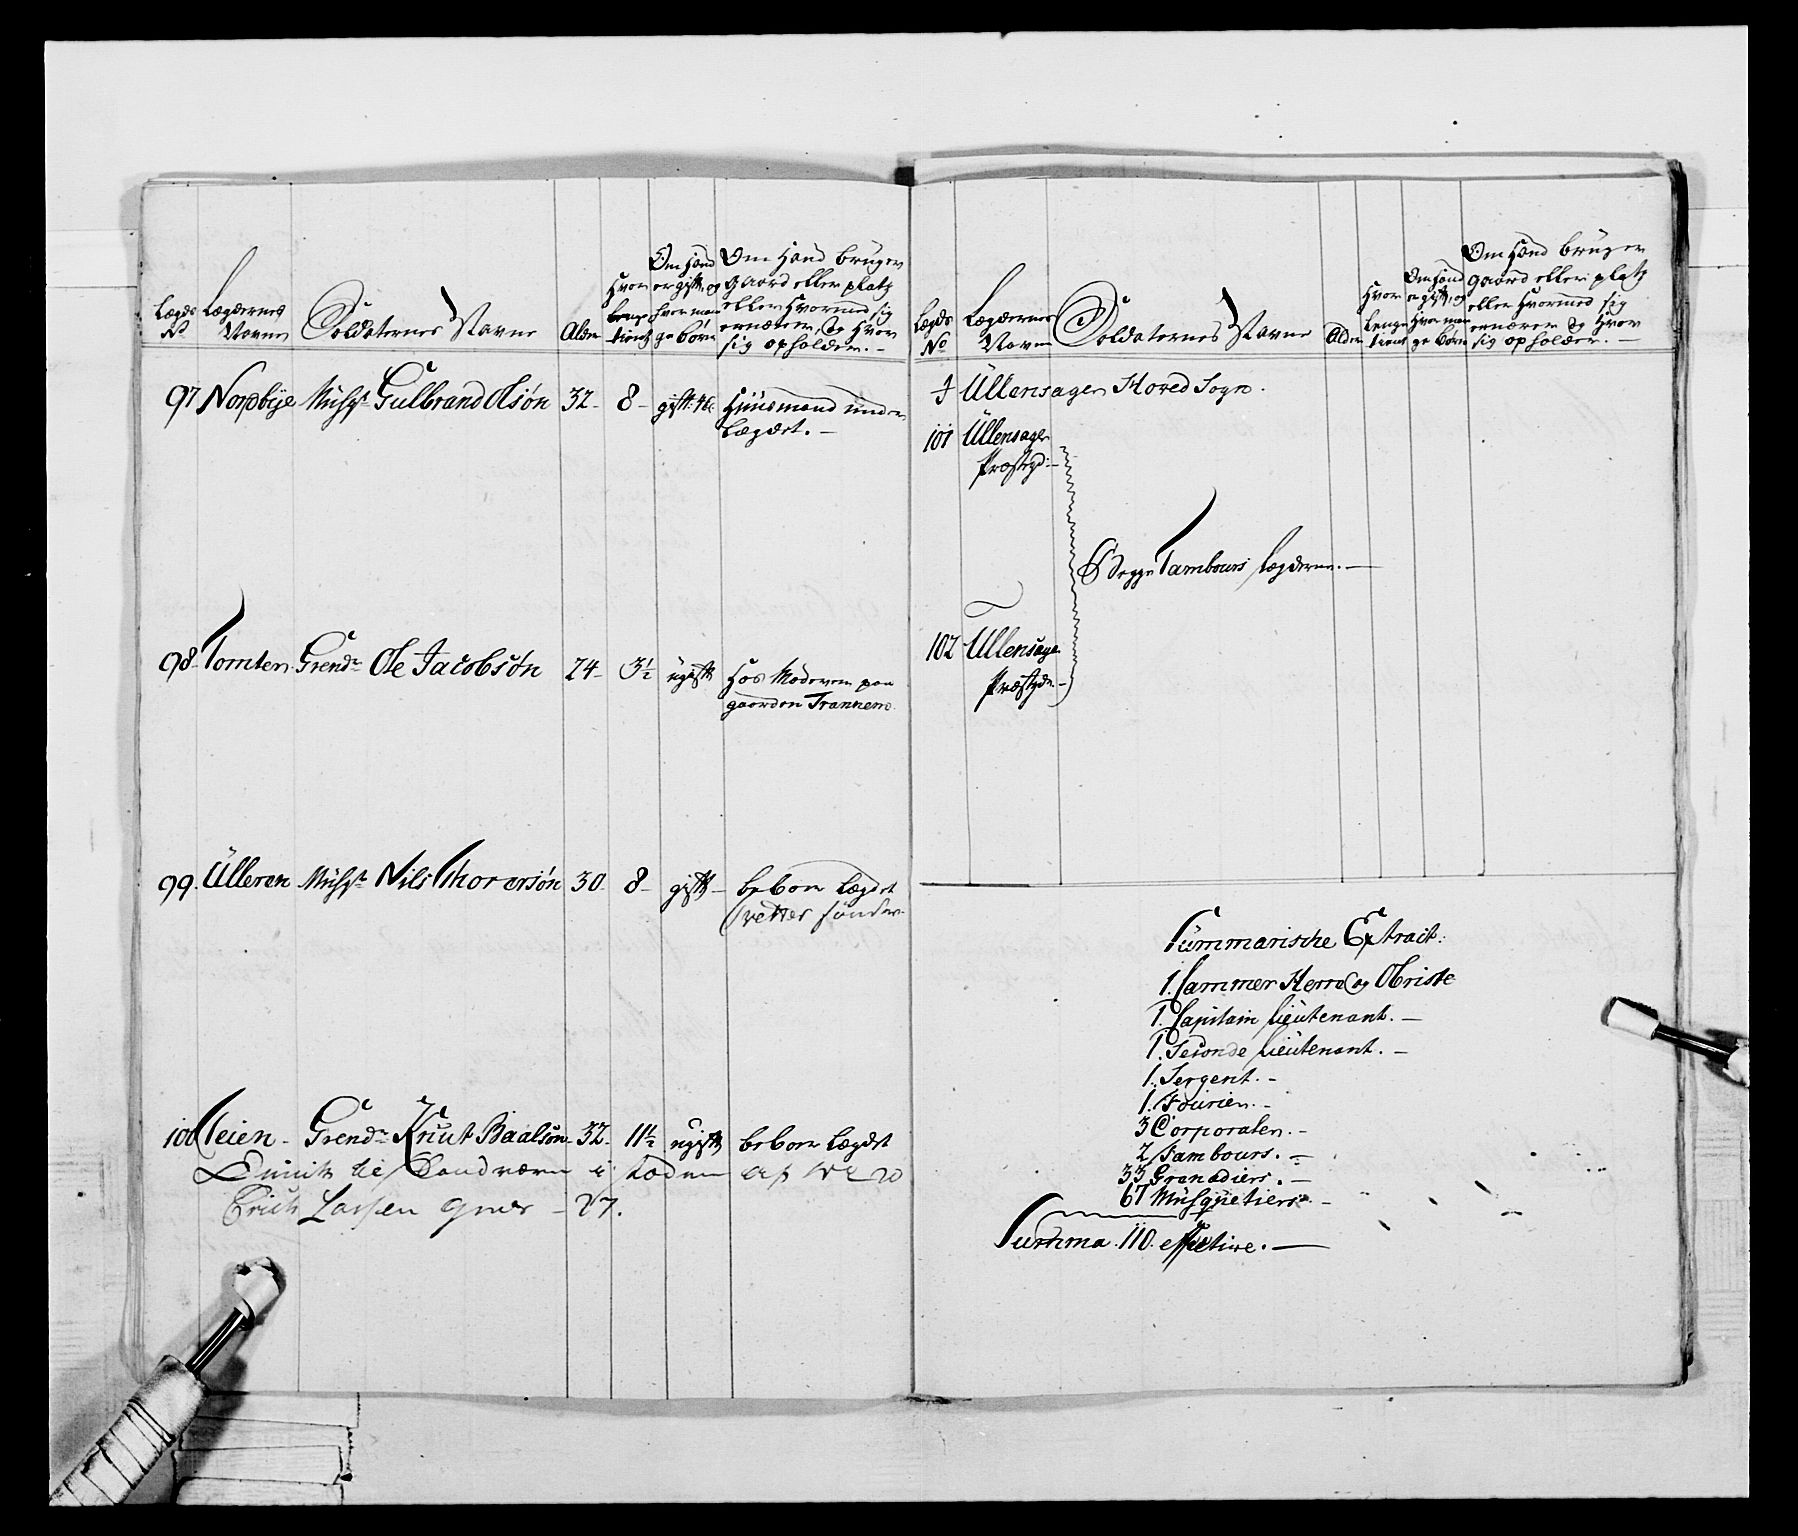 Lægds No
Lægdernes Navne
Soldaternes Navne
Alder
Hvor lenge tient
Om Hand er gift, og hvor mange børn
Om Hand bruger gaard eller platz eller hvormed sig ernærer, og hvor sig opholder. -
97 Nordbÿe Musqr Gulbrand Olsøn 32- 8- gift: Huusmand under
Lægdet. -
98- Tomten Grendr Ole Jacobsøn 24- 3½ ugift hos Moderen paa
gaarden Trannem.
99. Ülleren Musqr Nils Thorersøn 30. 8- gift- beboer Lægdet
sønder
100 Teien- Grendr Knut Baalsøn- 32- 11½ ugift beboer Lægdet
i af
Erich Larsen 27.
Lægds No
Lægdernes Navne
Soldaternes Navne
Alder
Hvor lenge tient
Om Hand er gift, og hvor mange børn
Om Hand bruger gaard eller platz eller hvormed sig ernærer og hvor sig opholder. -
I Üllensager Hoved Sogn.
101 Üllensager
Præstegd:-
Begge Tambours Lægderne. -
102 Üllensager
Præstegdn-
Summarische Extract:
1. Cammer Herre og Obriste
1. Capitain Lieutenant. -
1. Seconde Lieutenant. -
1. Sergent. -
1. Fourier. -
3 Corporaler. -
2 Tambours. -
33 Granadiers. -
67 Musquetiers. -
Summa. 110. effective. -